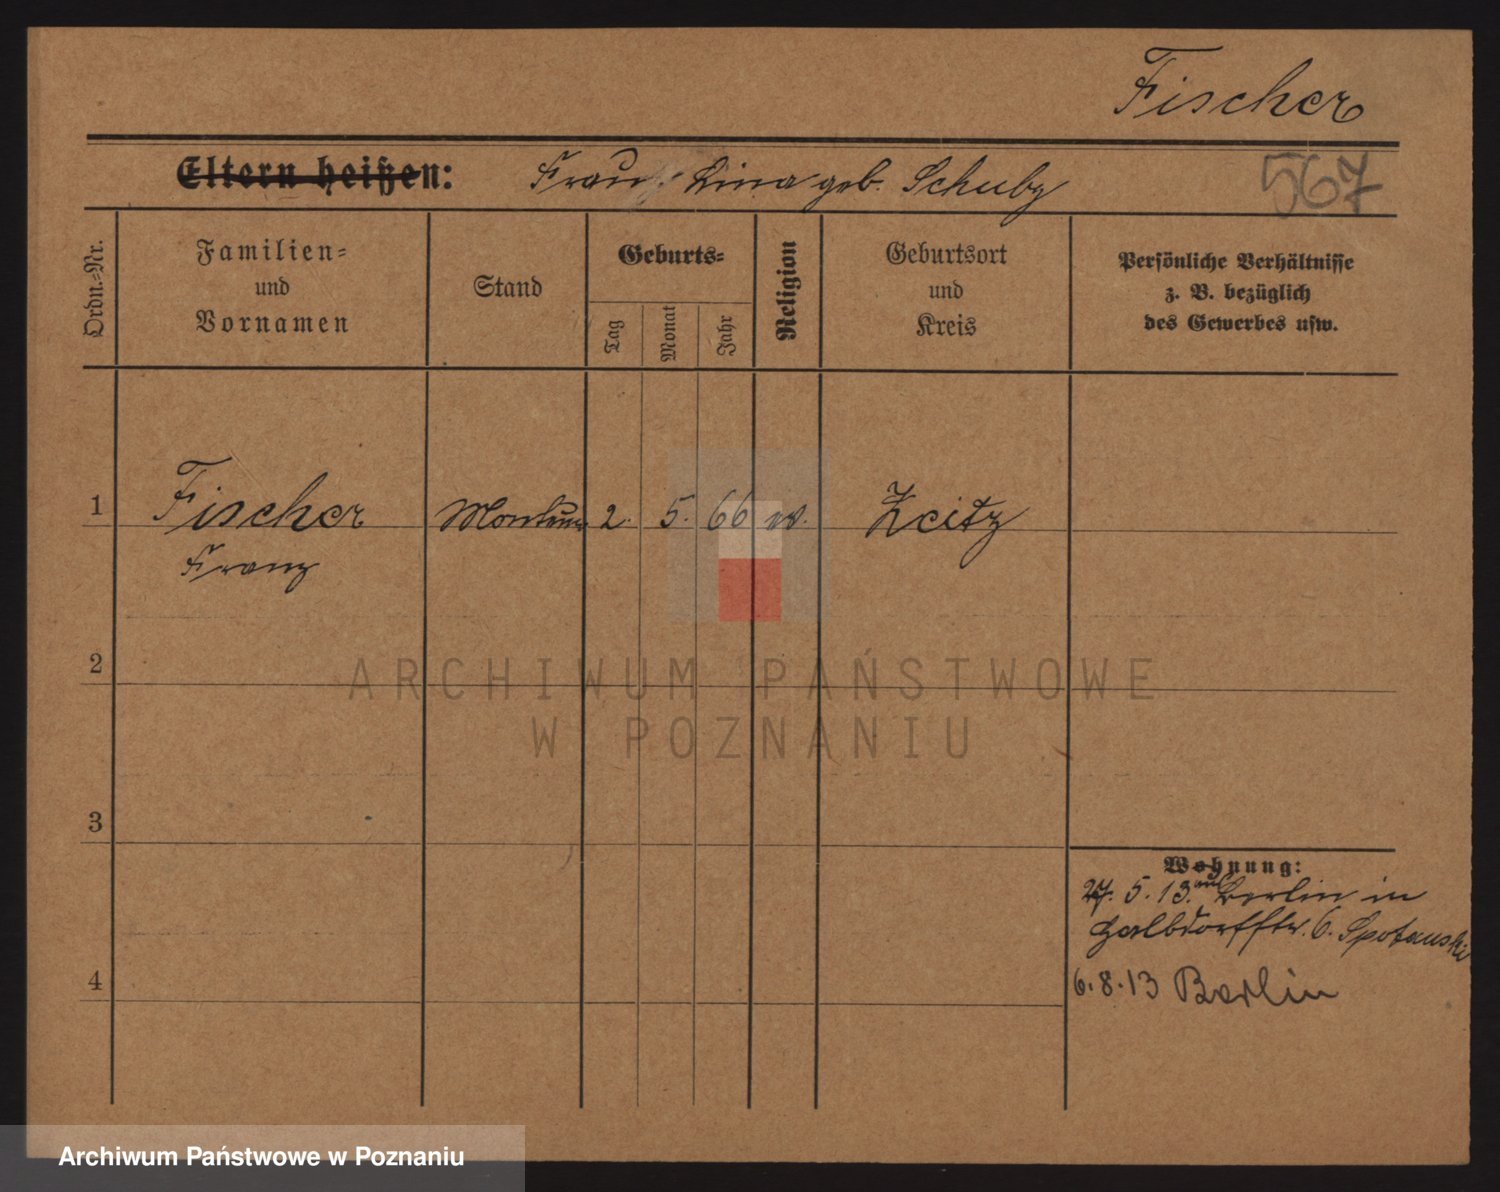 Fischer
Eltern heißen: Frau Lina geb. Schuby
567
Ordn.-Nr.
Familien-
und
Vornamen
Stand
Geburts-
Tag
Monat
Jahr
Religion
Geburtsort
und
Kreis
Persönliche Verhältnisse
z. B. bezüglich
des Gewerbes usw.
1 Fischer Monteur 2. 5. 66 ev. Zeitz
Franz
2
3
4
Wohnung:
27. 5. 13. aus Berlin in
Halbdorfstr. 6. Spotanski
6.8.13 Berlin
ARCHIWUM PAŃSTWOWE
W POZNANIU
Archiwum Państwowe w Poznaniu